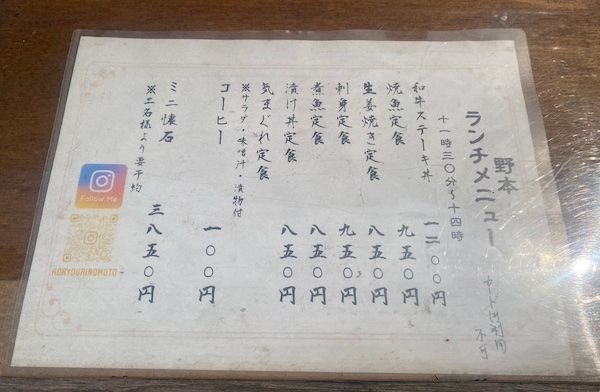 野本
ランチメニュー
カード御利用不可
十一時三〇分～十四時
和牛ステーキ丼 一二〇〇円
焼魚定食 九五〇円
生姜焼き定食 八五〇円
刺身定食 九五〇円
煮魚定食 八五〇円
漬け丼定食 八五〇円
気まぐれ定食
※サラダ・味噌汁・漬物付
コーヒー 一〇〇円
ミニ懐石 三八五〇円
※二名様より要予約
Follow Me
KORYOURINOMOTO